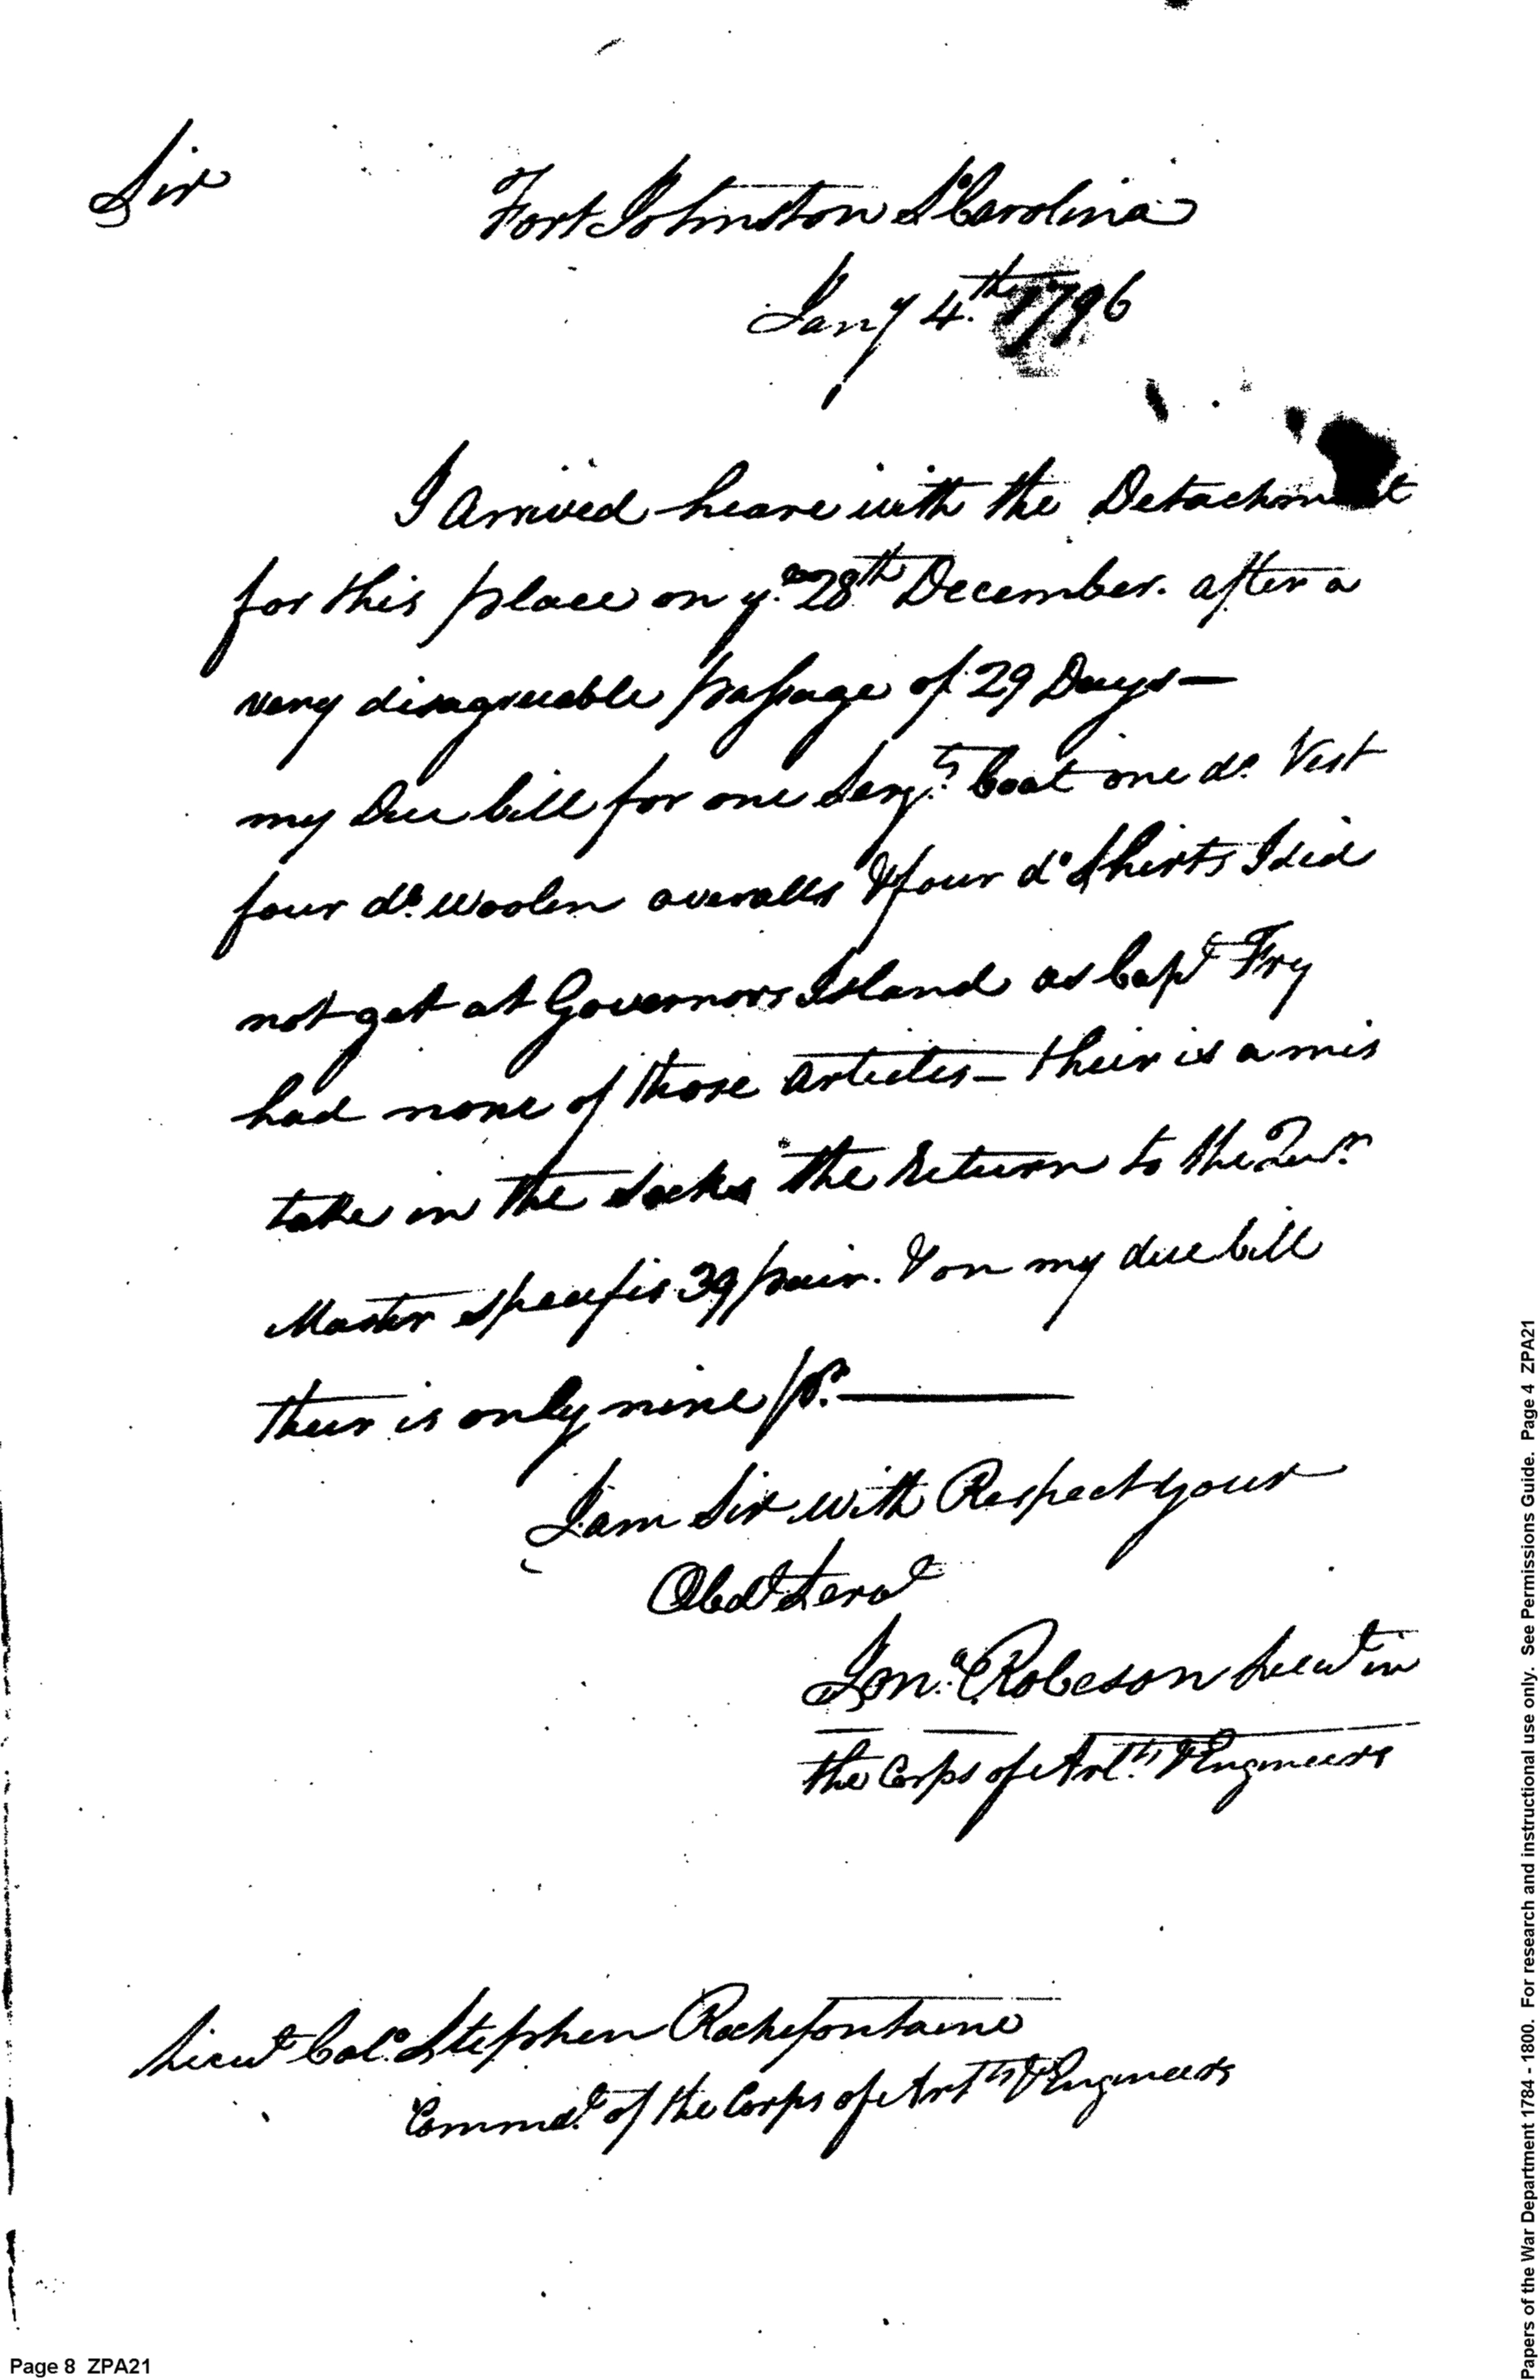 Sir
Fort Johnston So Carolina
Jany 4th 1796
I Arrived heare with the Detachment
for this place on ye 28th December. after a
very disagreeable passage of 29 Days—
my Due bill for one Sergts Coat one do Vest
four do woolen overalls & four do Shirts I did
not get at Governors Island as Capt Fry
had none of those articles— their is a mis
take in the Socks the Return to the Qur
Master specifis 39 pair. & on my due bill
their is only nine pr.—
I am Sir with Respect your
Obdt Servt
Jona Robeson Lieut in
the Corps of Artts & Engineers
Lieut Colo Stephen Rochefontaine
Commdt of the Corps of Artts & Engineers
Page 8 ZPA21
Papers of the War Department 1784 - 1800. For research and instructional use only. See Permissions Guide. Page 4 ZPA21